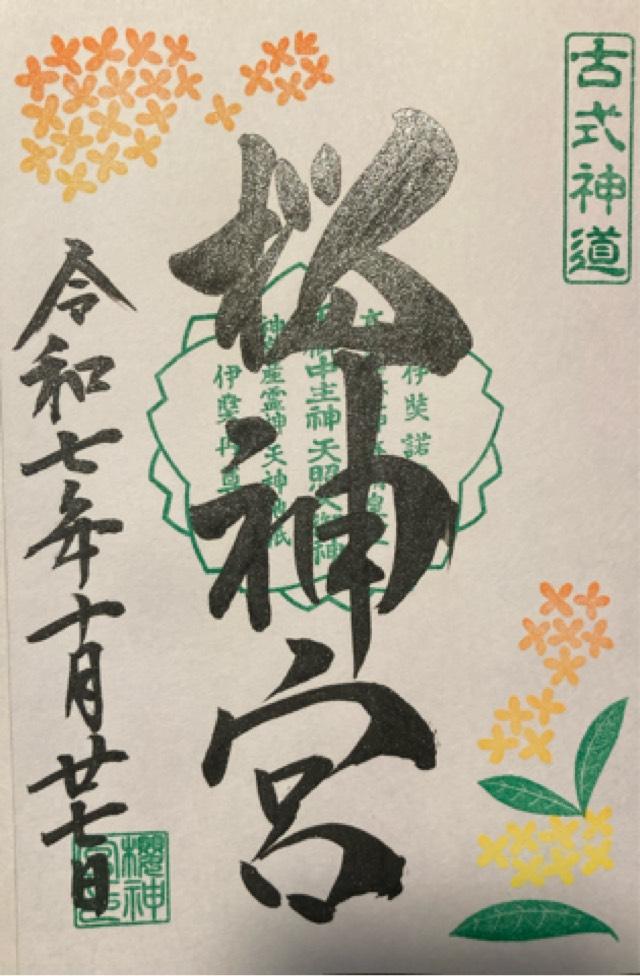 古式神道
桜神宮
伊奘諾
中主神 天照大御神
神皇産霊神 天神地祇
伊奘冉尊
令和七年十月廿七日
櫻神宮